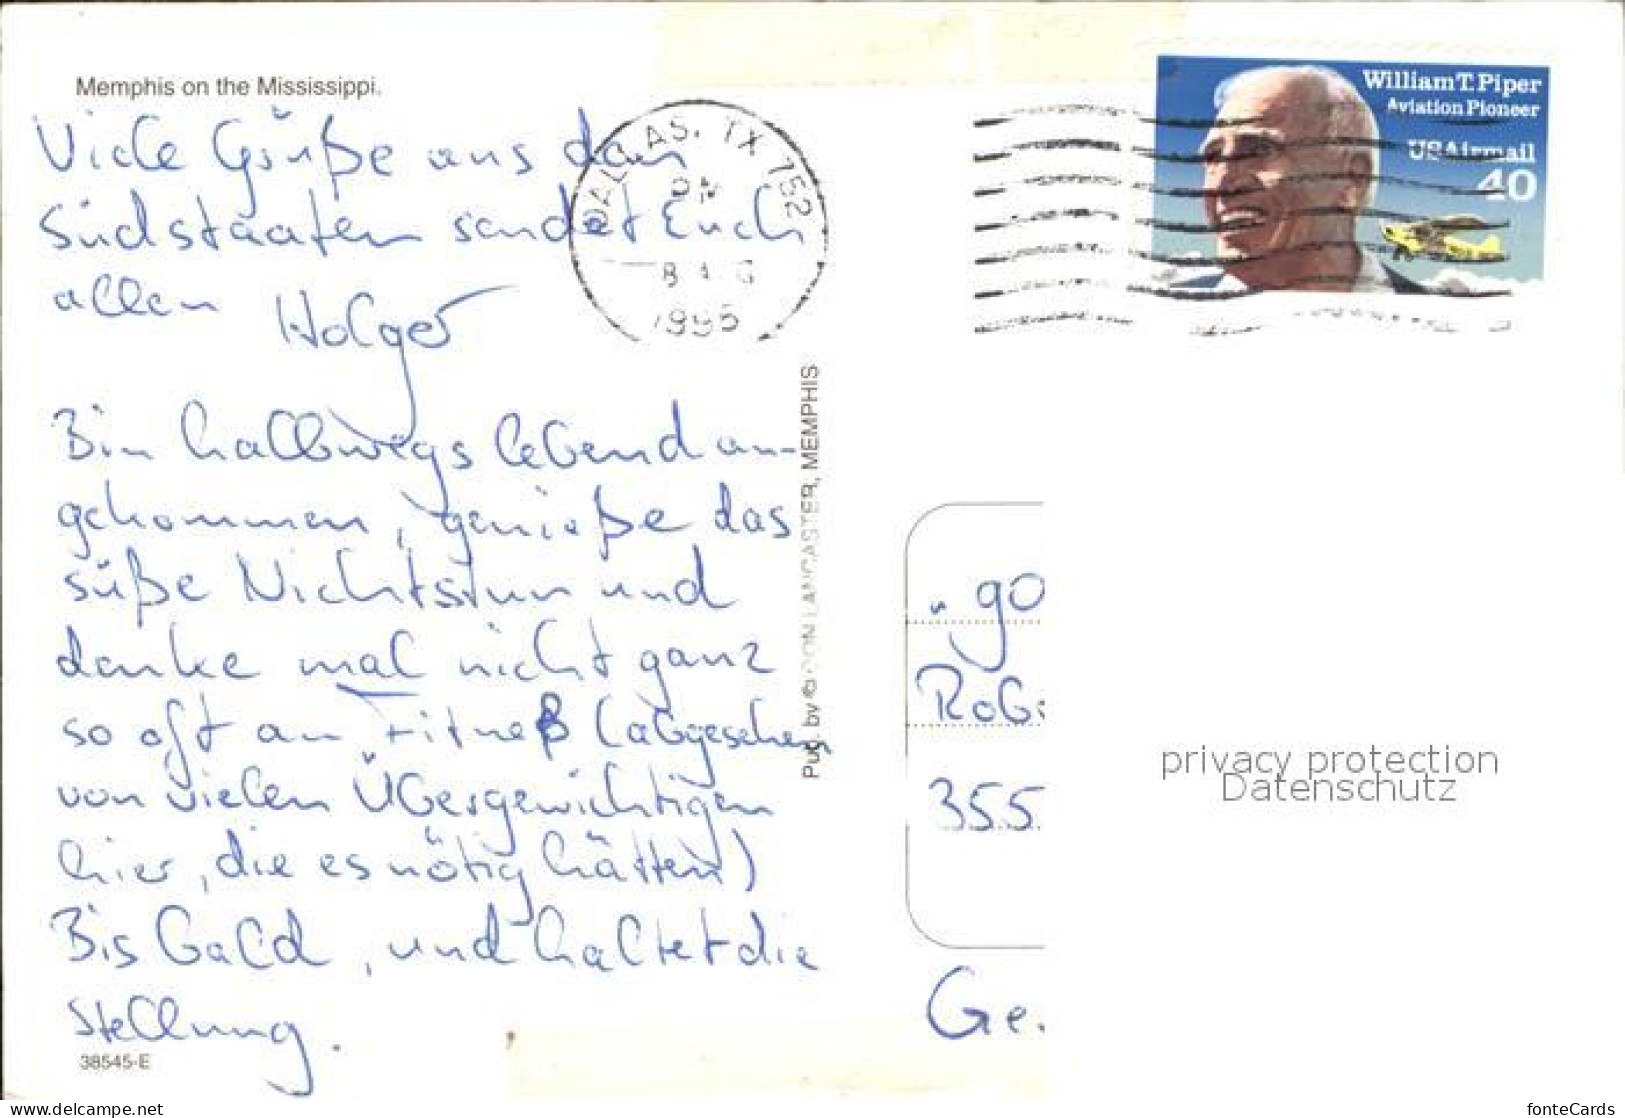 Memphis on the Mississippi.
Viele Grüße aus den
Südstaaten sendet Euch
allen Holger
Bin halbwegs lebend an-
gekommen, genieße das
süße Nichtstun und
denke mal nicht ganz
so oft an Fitneß (abgesehen
von vielen Übergewichtigen
hier, die es nötig hätten)
Bis bald, und haltet die
Stellung.
38545-E
DALLAS, TX 752
PM
8
1995
Pub. by © DON LANCASTER, MEMPHIS
William T. Piper
Aviation Pioneer
USAirmail
40
„go
Rob
355
Ge.
privacy protection
Datenschutz
www.delcampe.net/marke1112
fonteCards